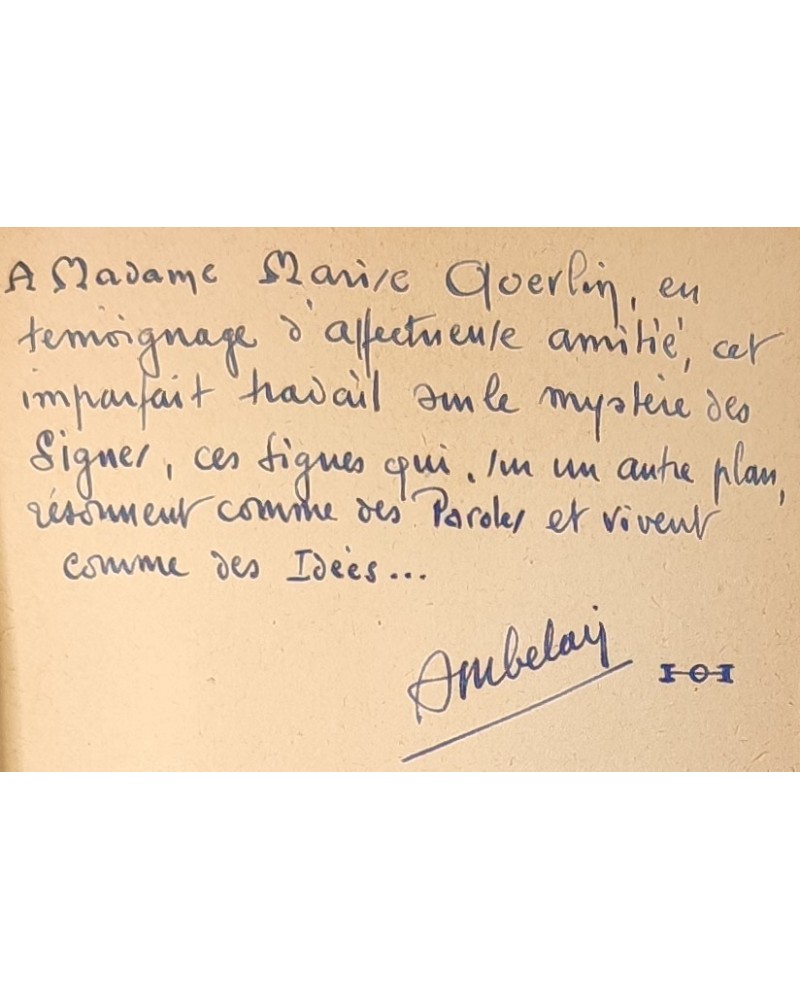 A Madame Marise Querlin, en
temoignage d'affectueuse amitié, cet
imparfait travail sur le mystère des
Signes, ces signes qui, sur un autre plan,
résonnent comme des Paroles et vivent
comme des Idées...
Ambelain